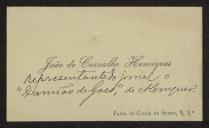 João de Carvalho Henriques
representante do jornal o
"Damião de Goes" de Alemquer.
Pateo do Conde de Soure, 9, 2.º